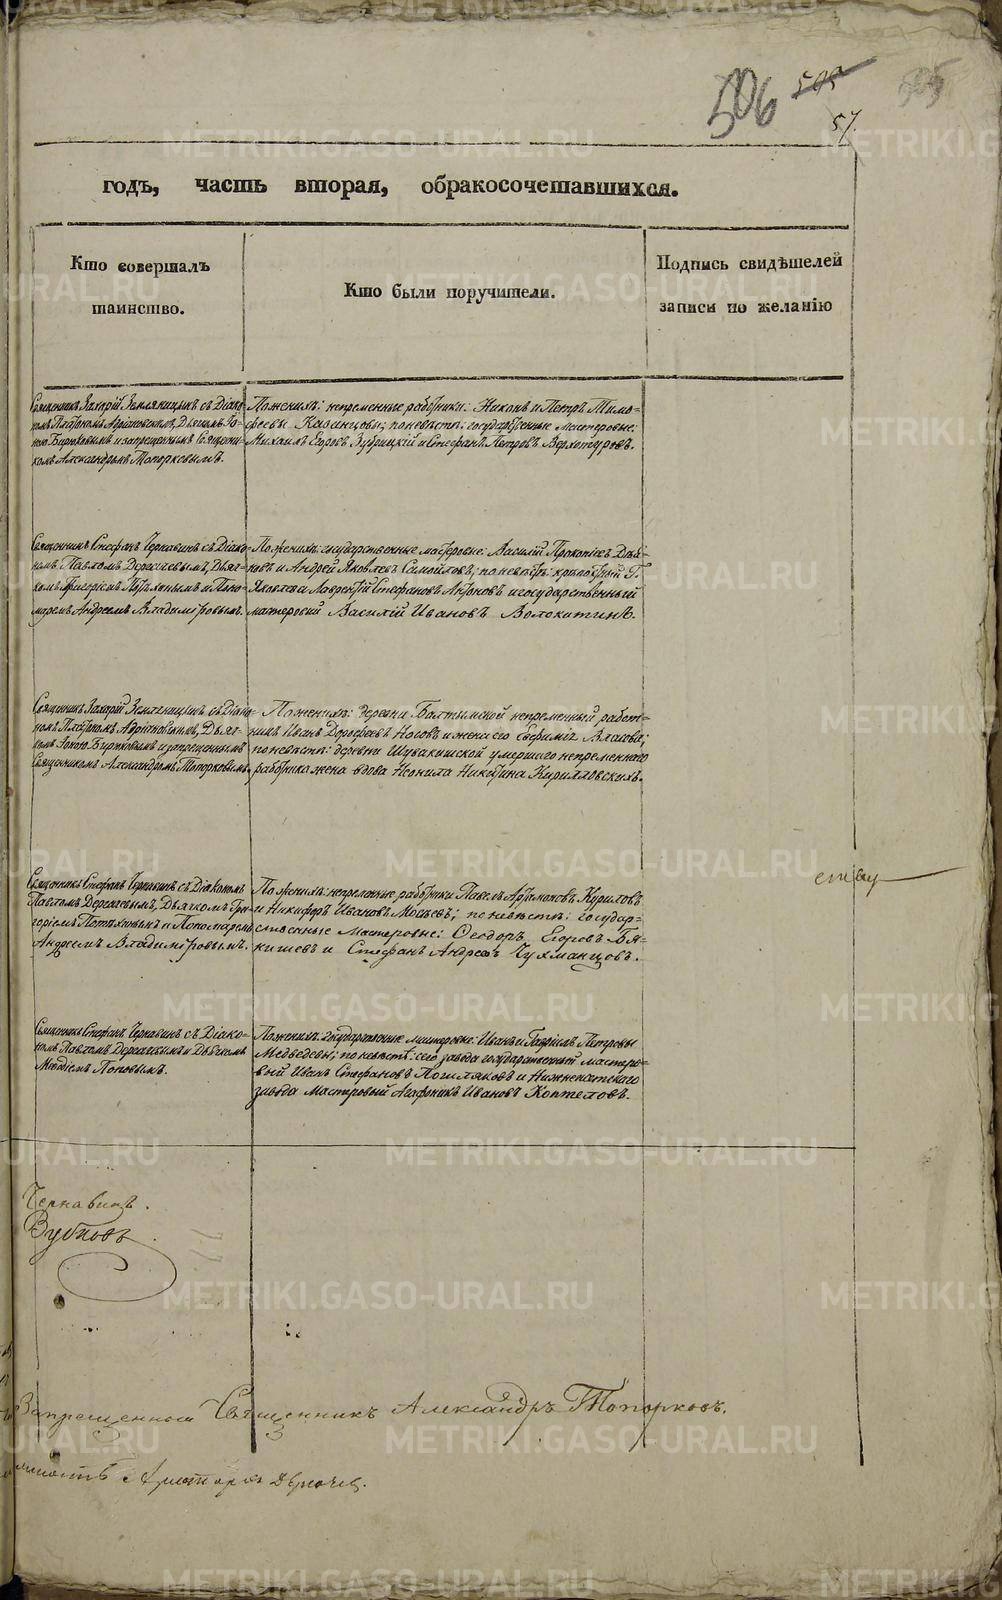 506 505
57
годъ, часть вторая, обракосочетавшихся.
Кто совершалъ
таинство.
Кто были поручители.
Подпись свидѣтелей
записи по желанію
Священникъ Захарій Земляницынъ съ Діако-
номъ Платономъ Адріановскимъ, Дьячкомъ
Бирюковымъ и запрещеннымъ Священни-
комъ Александромъ Топорковымъ.
По женихѣ: непременные работники: Никонъ и Петръ Тимо-
феевы Казанцовы; по невѣстѣ: государственные мастеровые:
Михаилъ Егоровъ Зубрицкій и Стефанъ Петровъ Верхотуровъ.
Священникъ Стефанъ Чернавинъ съ Діако-
номъ Павломъ Дерягевымъ, Дьяч-
комъ Григоріемъ и Поно-
маремъ Андреемъ Владиміровымъ.
По женихѣ: государственные мастеровые: Василій Прокопіевъ
и Андрей Яковлевъ Самойловъ; по невѣстѣ: крѣпостный Г.
Яковлева Лаврентій Стефановъ Антоновъ и государственный
мастеровой Василій Ивановъ Волокитинъ.
Священникъ Захарій Земляницынъ съ Діако-
номъ Платономъ Адріановскимъ, Дьяч-
комъ Бирюковымъ и запрещеннымъ
Священникомъ Александромъ Топорковымъ.
По женихѣ: деревни Балтымской непременный работ-
никъ Иванъ Дорофеевъ Носовъ и жена его Евфимія Власова;
по невѣстѣ: деревни Шувакишской умершаго непременнаго
работника жена вдова Неонила Никитина Кирилловскихъ.
Священникъ Стефанъ Чернавинъ съ Діакономъ
Павломъ Дерягевымъ, Дьячкомъ Гри-
горіемъ и Пономаремъ
Андреемъ Владиміровымъ.
По женихѣ: непременные работники Павелъ Артамоновъ Куриловъ
и Никифоръ Ивановъ Мосѣевъ; по невѣстѣ: государ-
ственные мастеровые: Феодоръ Егоровъ Бя-
кишевъ и Стефанъ Андреевъ Чухманцовъ.
Священникъ Стефанъ Чернавинъ съ Діако-
номъ Павломъ Дерягевымъ и Дьячкомъ
Мефодіемъ Поповымъ.
По женихѣ: государственные мастеровые: Иванъ и Гавріилъ Петровы
Медведевы; по невѣстѣ: сего завода государственный мастеро-
вый Иванъ Стефановъ и Нижнеисетскаго
завода мастеровый Агафоникъ Ивановъ Коптеловъ.
Чернавинъ.
Зубковъ
Запрещенной Священникъ Александръ Топорковъ.